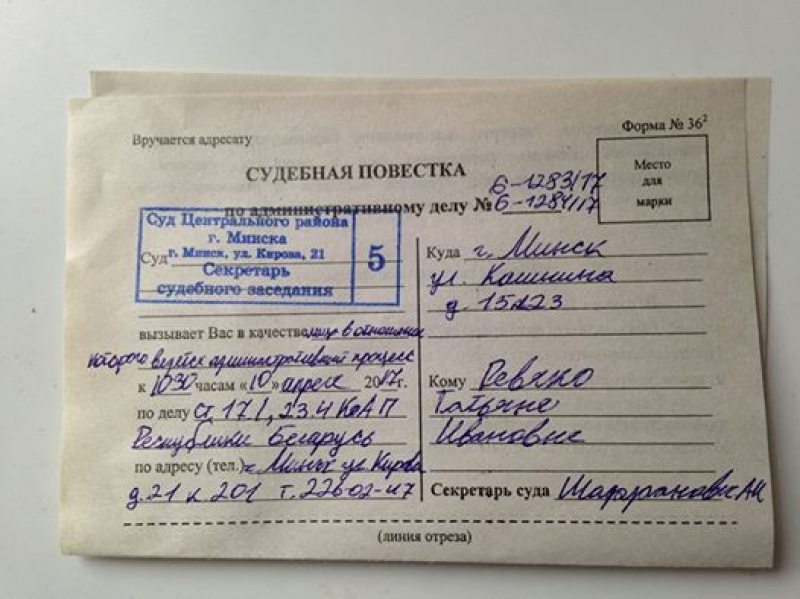 Форма № 36²
Вручается адресату
Место
для
марки
СУДЕБНАЯ ПОВЕСТКА
6-1283/17
по административному делу № 6-1284/17
Суд Центрального района
г. Минска
Суд г. Минск, ул. Кирова, 21
Секретарь
судебного заседания
5
вызывает Вас в качестве лица в отношении
которого ведется административный процесс
к 1030 часам «10» апреля 2017г.
по делу ст. 17.1, 23.4 КоАП
Республики Беларусь
по адресу (тел.) г. Минск ул Кирова
д. 21 к 201 т.
Куда г. Минск
ул. Калинина
д.
Кому Ревяко
Татьяне
Ивановне
Секретарь суда
(линия отреза)